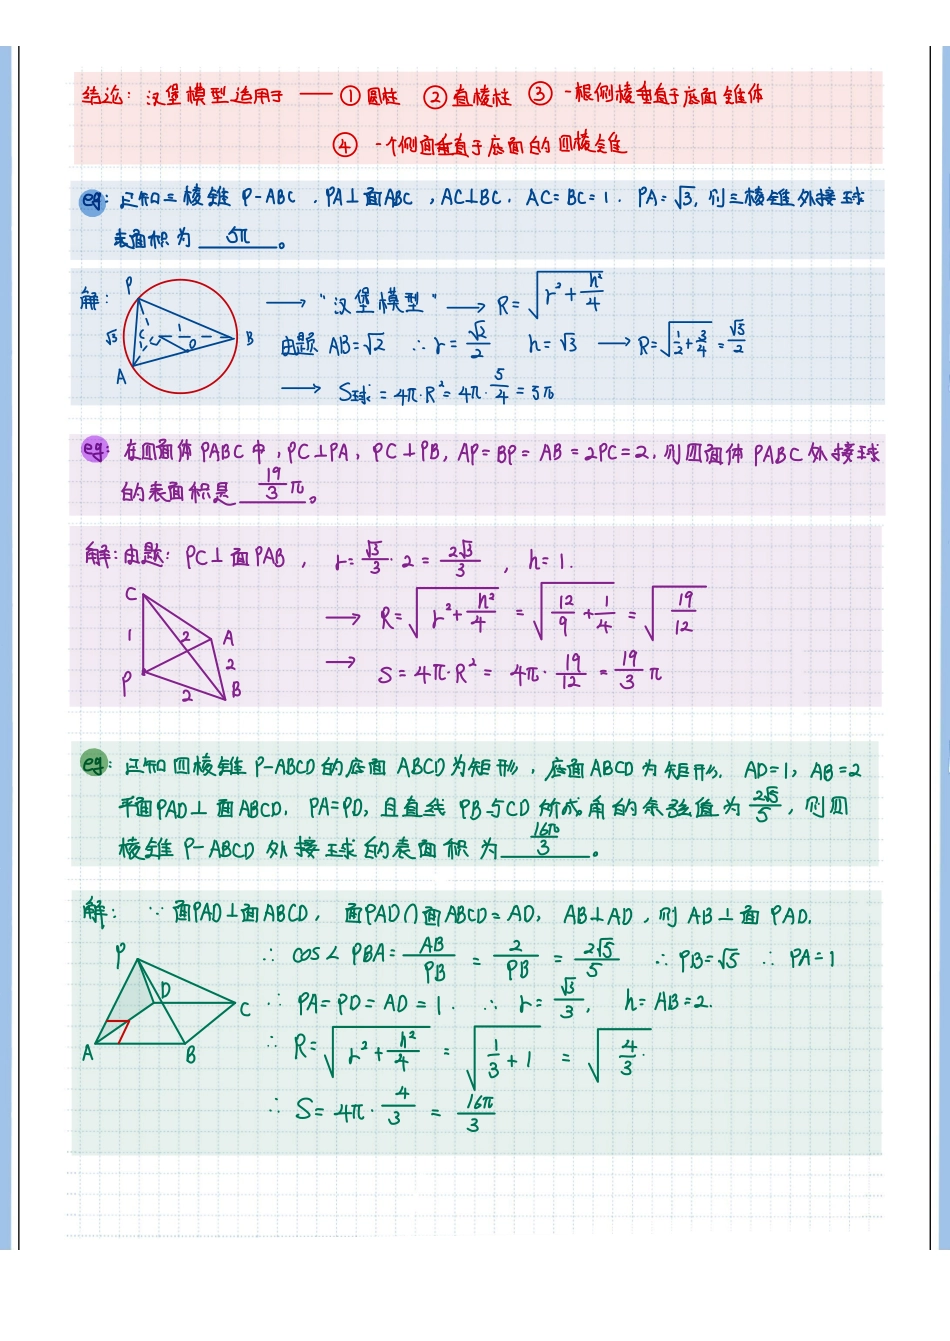 结论: 汉堡模型适用于 —— ① 圆柱 ② 直棱柱 ③ 一根侧棱垂直于底面锥体
④ 一个侧面垂直于底面的四棱锥
eg: 已知三棱锥 P-ABC , PA⊥面ABC , AC⊥BC , AC=BC=1 , PA=√3, 则三棱锥外接球
表面积为 5π 。
解: P √3 A C 1 O B → "汉堡模型" → R=√(r²+h²/4)
由题 AB=√2 ∴ r=√2/2 h=√3 → R=√(1/2+3/4)=√5/2
→ S球=4π·R²=4π·5/4=5π
eg: 在四面体 PABC 中 , PC⊥PA , PC⊥PB, AP=BP=AB=2PC=2, 则四面体 PABC 外接球
的表面积是 19/3 π 。
解: 由题: PC⊥面PAB , r=√3/3·2=2√3/3 , h=1.
C 1 2 A P 2 2 B → R=√(r²+h²/4)=√(12/9+1/4)=√(19/12)
→ S=4π·R²=4π·19/12=19/3 π
eg: 已知四棱锥 P-ABCD的底面 ABCD为矩形 , 底面ABCD为矩形. AD=1, AB=2
平面PAD⊥面ABCD. PA=PD, 且直线 PB与CD 所成角的余弦值为 2√5/5 , 则四
棱锥 P-ABCD 外接球的表面积为 16π/3 。
解: ∵ 面PAD⊥面ABCD , 面PAD∩面ABCD=AD, AB⊥AD , 则 AB⊥面 PAD.
P D C A B ∴ cos∠PBA=AB/PB=2/PB=2√5/5 ∴ PB=√5 ∴ PA=1
∴ PA=PD=AD=1. ∴ r=√3/3, h=AB=2.
∴ R=√(r²+h²/4)=√(1/3+1)=√(4/3).
∴ S=4π·4/3=16π/3